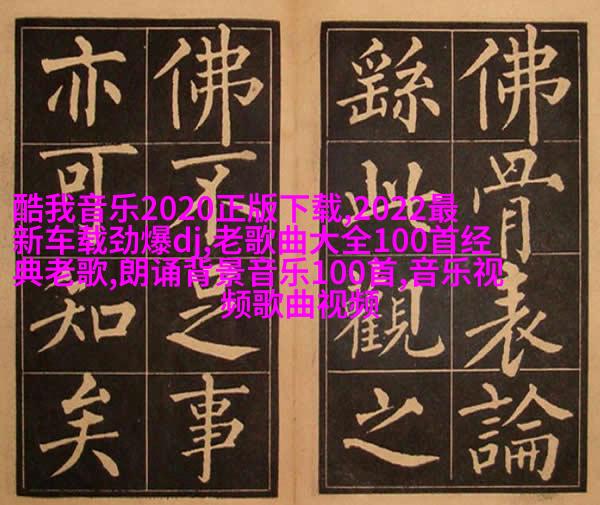 酷我音乐2020正版下载,2022最
新车载劲爆dj,老歌曲大全100首经
典老歌,朗诵背景音乐100首,音乐视
频歌曲视频
佛骨表論
繇此觀之
佛不足事
亦可知矣